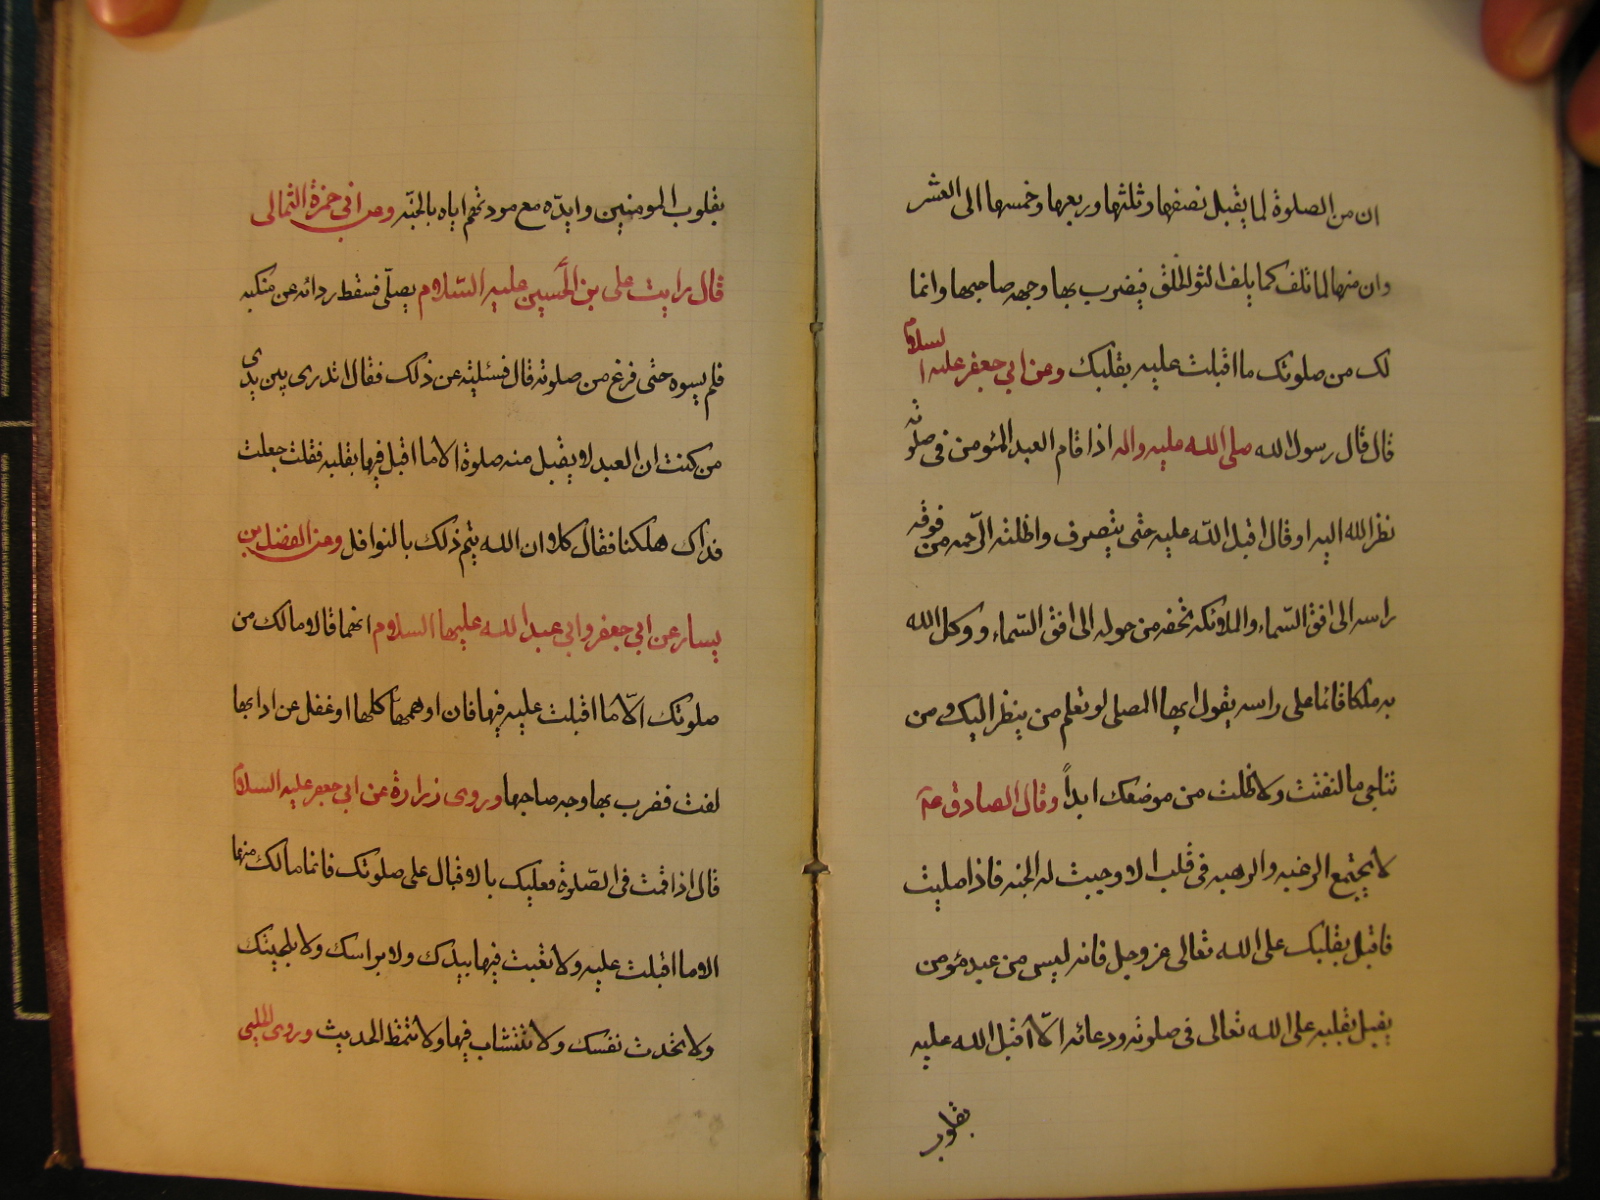 ان من الصلوة لما يقبل نصفها وثلثها وربعها وخمسها الى العشر
وان منها لما تلف كما يلف الثو الخلق فيضرب بها وجهه صاحبها وانما
لك من صلوتك ما اقبلت عليه بقلبك وعن ابي جعفر عليه السلام
قال قال رسول الله صلى الله عليه واله اذا قام العبد المؤمن فى صلوته
نظر الله اليه او قال اقبل الله عليه حتى ينصرف واظلته الرحمه من فوقه
راسه الى افق السماء والملائكه تحفه من حوله الى افق السماء ووكل الله
به ملكا قائما على راسه يقول ايها المصلى لو تعلم من ينظر اليك ومن
تناجى ما التفتت ولا ظلت من موضعك ابداً وقال الصادق عم
لا يجتمع الرغبه والرهبه فى قلب الا وجبت له الجنه فاذا صليت
فاقبل بقلبك على الله تعالى عز وجل فانه ليس من عبد مؤمن
يقبل بقلبه على الله تعالى فى صلوته ودعائه الّا اقبل الله عليه
بقلوب
بقلوب المومنين وايّده مع مودتهم اياه بالجنّه وعن ابى حمزة الثمالى
قال رايت على بن الحسين عليه السلام يصلّى فسقط ردائه عن منكبه
فلم يسوه حتى فرغ من صلوته قال فسئلته عن ذلك فقال اتدرى بين يدى
من كنت ان العبد لا يقبل منه صلوة الا ما اقبل فيها بقلبه فقلت جعلت
فداك هلكنا فقال كلا ان الله يتم ذلك بالنوافل وعن الفضل بن
يسار عن ابي جعفر وابي عبد الله عليهما السلام انهما قالا ومالك من
صلوتك الّا ما اقبلت عليه فيها فان اوهمها كلها او غفل عن ادابها
لفت فضرب بها وجه صاحبها وروى زرارة عن ابي جعفر عليه السلام
قال اذا قمت فى الصّلوة فعليك بالاقبال على صلوتك فانما مالك منها
الا ما اقبلت عليه ولا تعبث فيها بيدك ولا براسك ولا بلحيتك
ولا تحدث نفسك ولا تتثاب فيها ولا تتمط الحديث وروى الحلبى